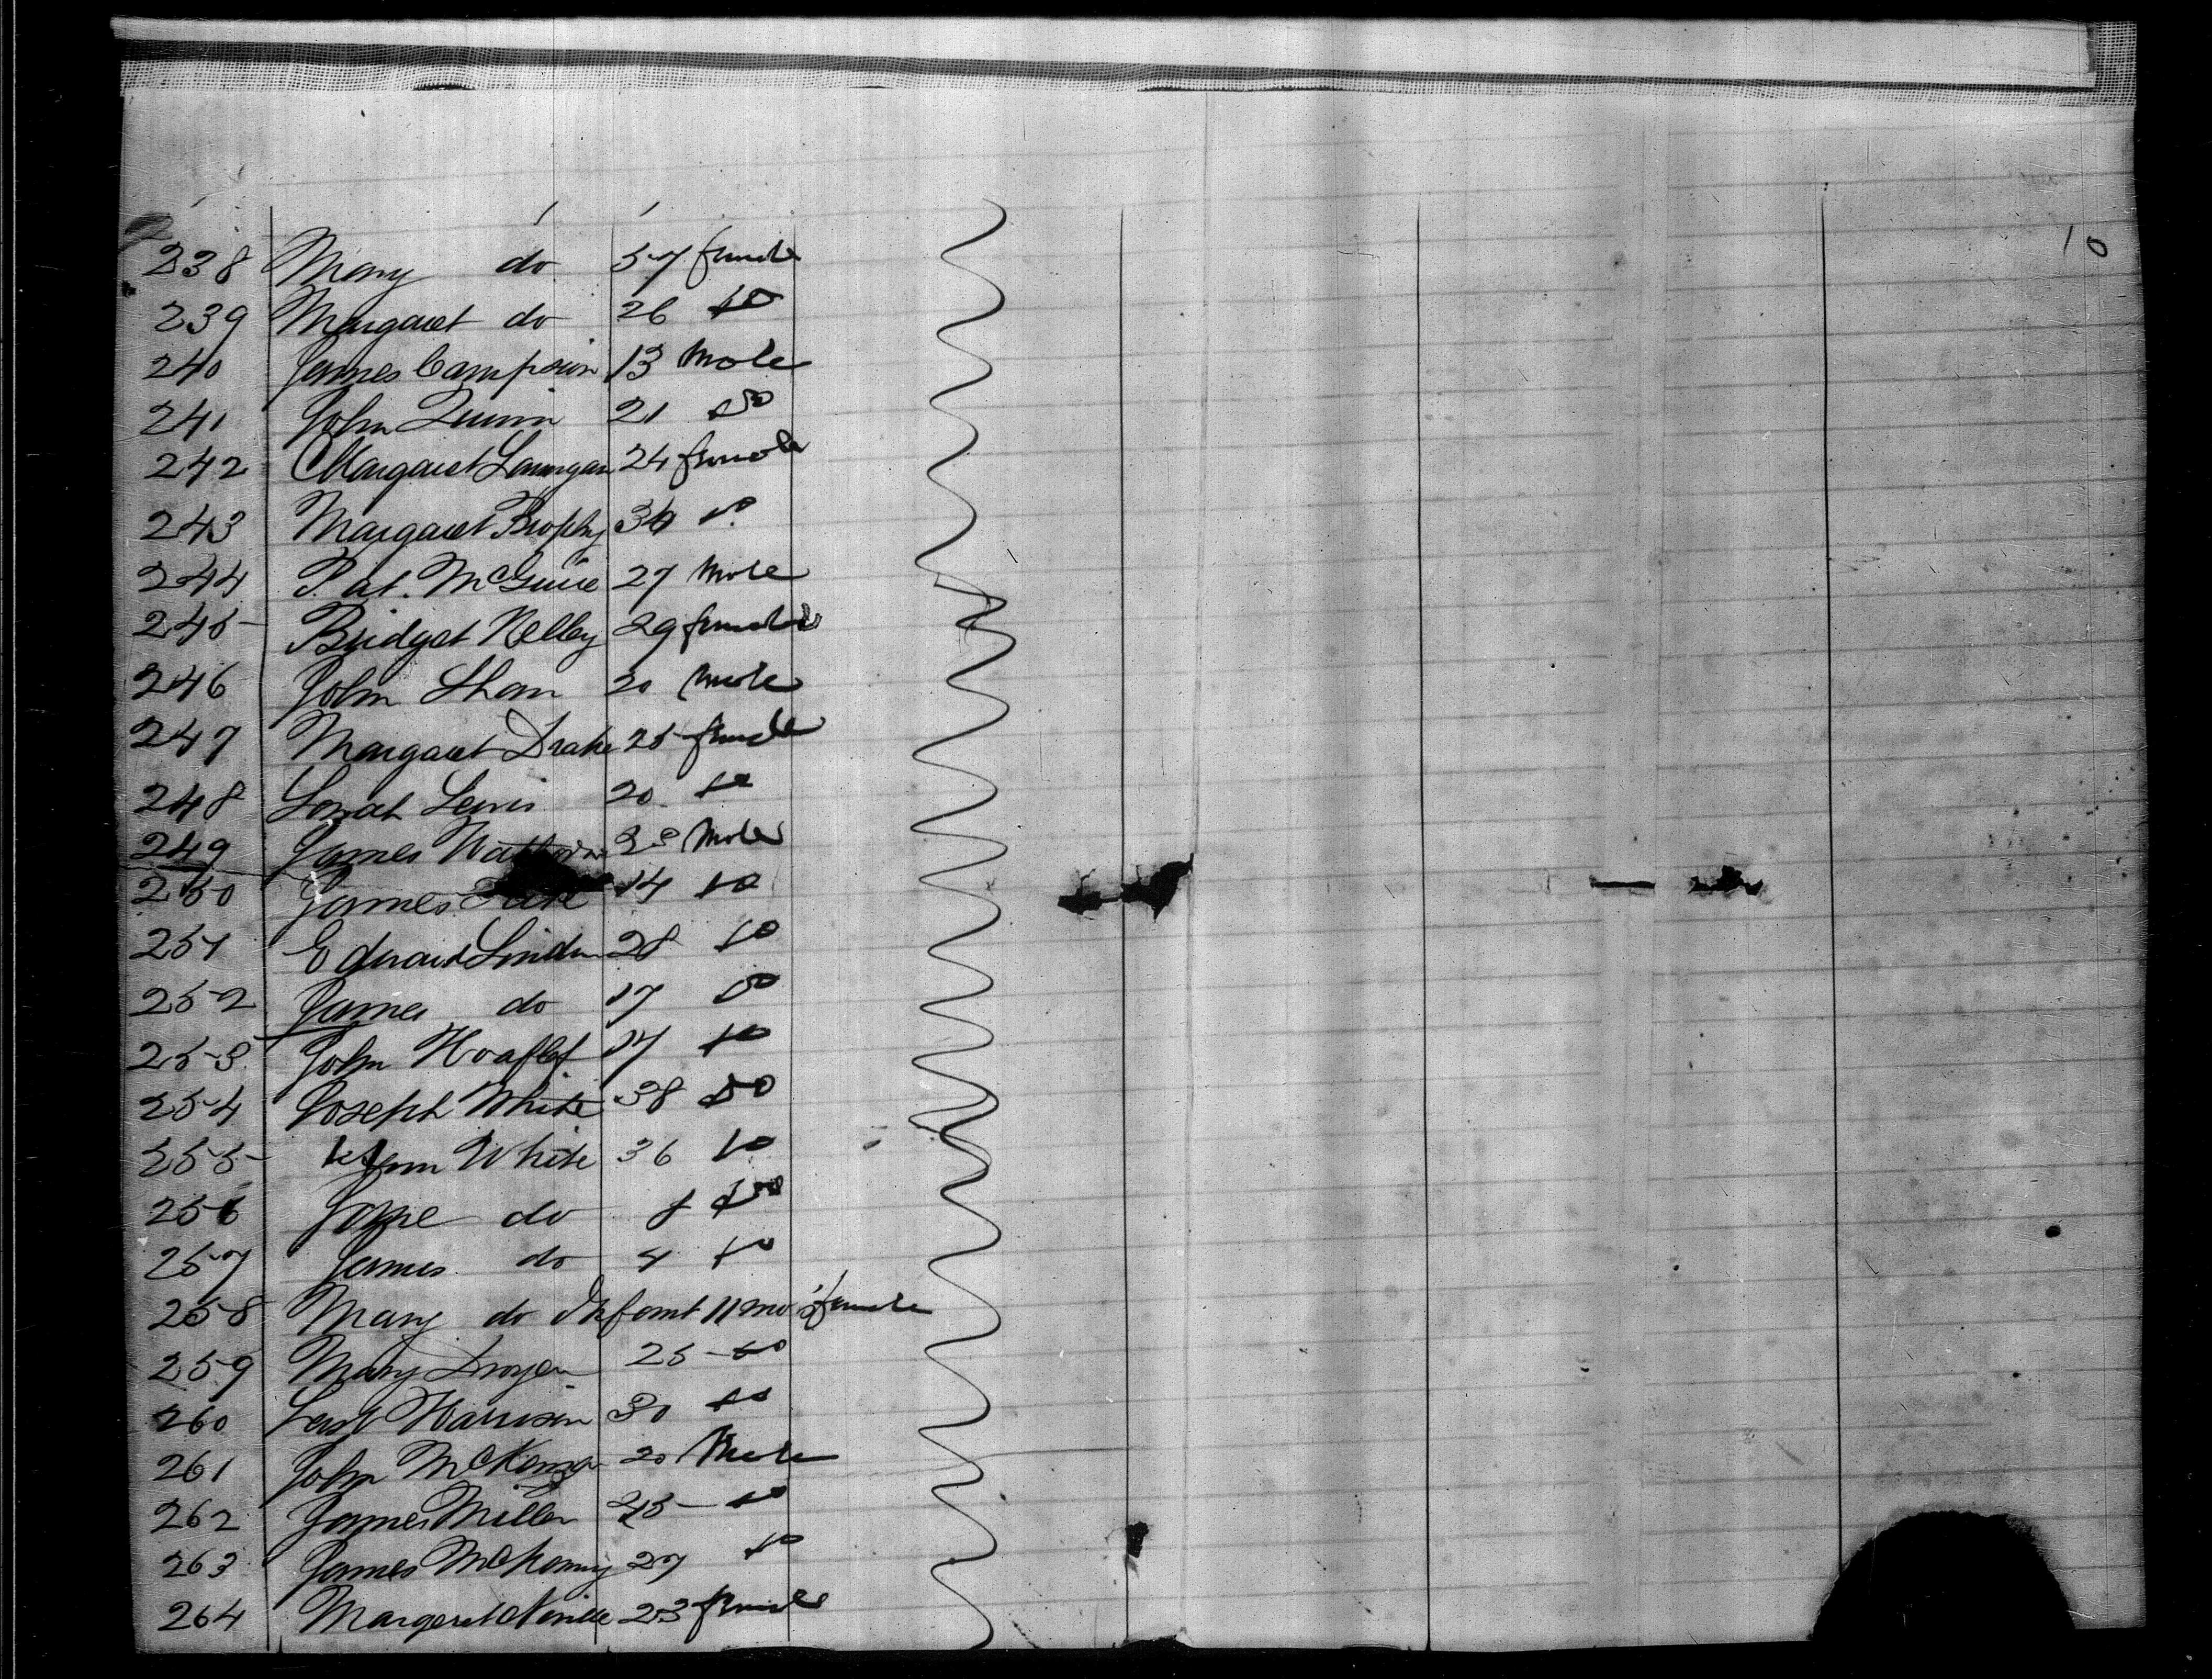 10
238 Mary do 57 female
239 Margaret do 26 do
240 James Campion 13 Male
241 John Quinn 21 do
242 Margaret Lannigan 24 female
243 Margaret Brophy 34 do
244 Pat. McGuire 27 Male
245 Bridget Kelley 29 female
246 John Shan 20 Male
247 Margaret Drake 25 female
248 Lewis 20 do
249 James Male
250 James 14 do
251 Edward Linden 28 do
252 James do 17 do
253 John 17 do
254 Joseph White 38 do
255 Ann White 36 do
256 do 8 do
257 James do 4 do
258 Mary do Infant 11 mo female
259 Mary 25 do
260 Harrison 30 do
261 John McKenna 20 Male
262 James Miller 25 do
263 James 27 do
264 Margaret Neville 23 female